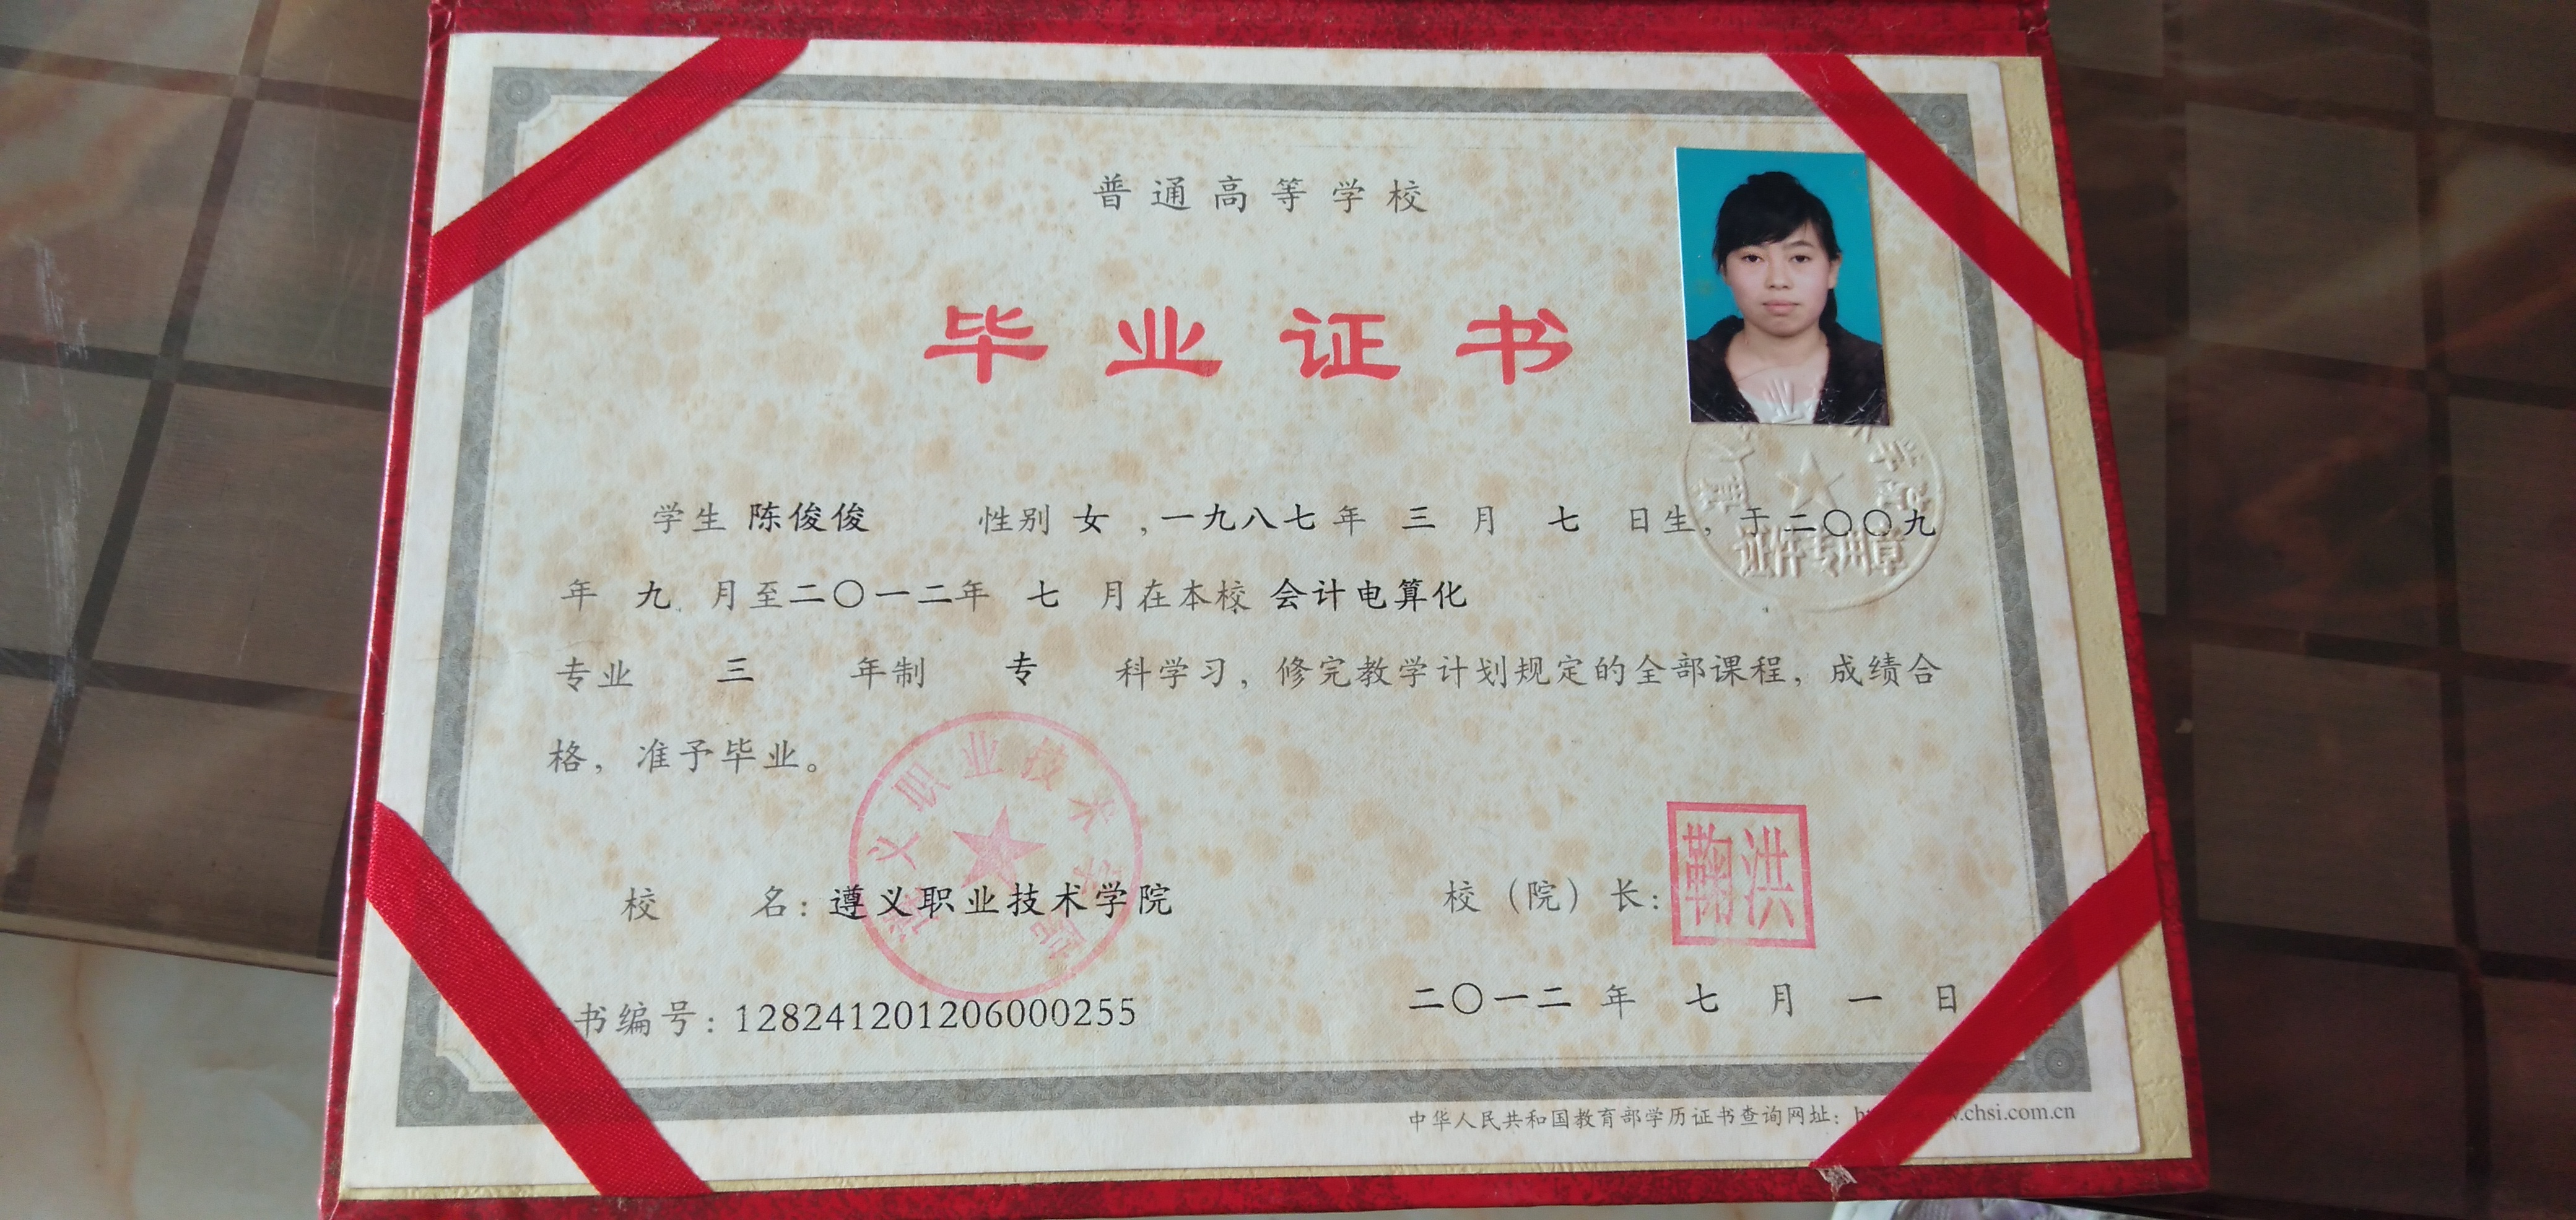 普通高等学校
毕业证书
学生 陈俊俊 性别 女 ,一九八七年 三 月 七 日生, 于二〇〇九
年 九 月至二〇一二年 七 月在本校 会计电算化
专业 三 年制 专 科学习, 修完教学计划规定的全部课程, 成绩合
格, 准予毕业。
证件专用章
遵义职业技术学院
校 名: 遵义职业技术学院
校(院)长:
鞠洪
书编号: 128241201206000255
二〇一二 年 七 月 一 日
中华人民共和国教育部学历证书查询网址: .chsi.com.cn